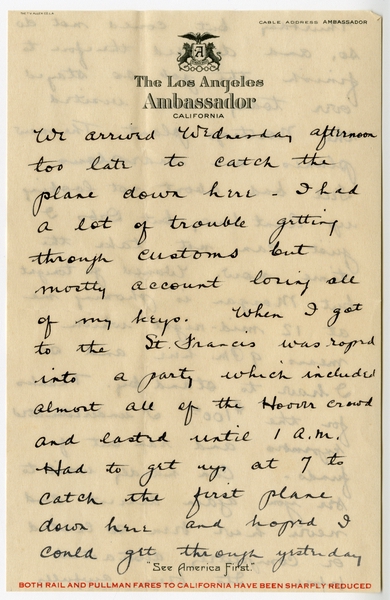 CABLE ADDRESS AMBASSADOR
A
The Los Angeles
Ambassador
CALIFORNIA
We arrived Wednesday afternoon
too late to catch the
plane down here - I had
a lot of trouble getting
through customs but
mostly account losing all
of my keys. When I got
to the St. Francis was roped
into a party which included
almost all of the Hoover crowd
and lasted until 1 A.M.
Had to get up at 7 to
catch the first plane
down here and hoped I
could get through yesterday
"See America First."
BOTH RAIL AND PULLMAN FARES TO CALIFORNIA HAVE BEEN SHARPLY REDUCED